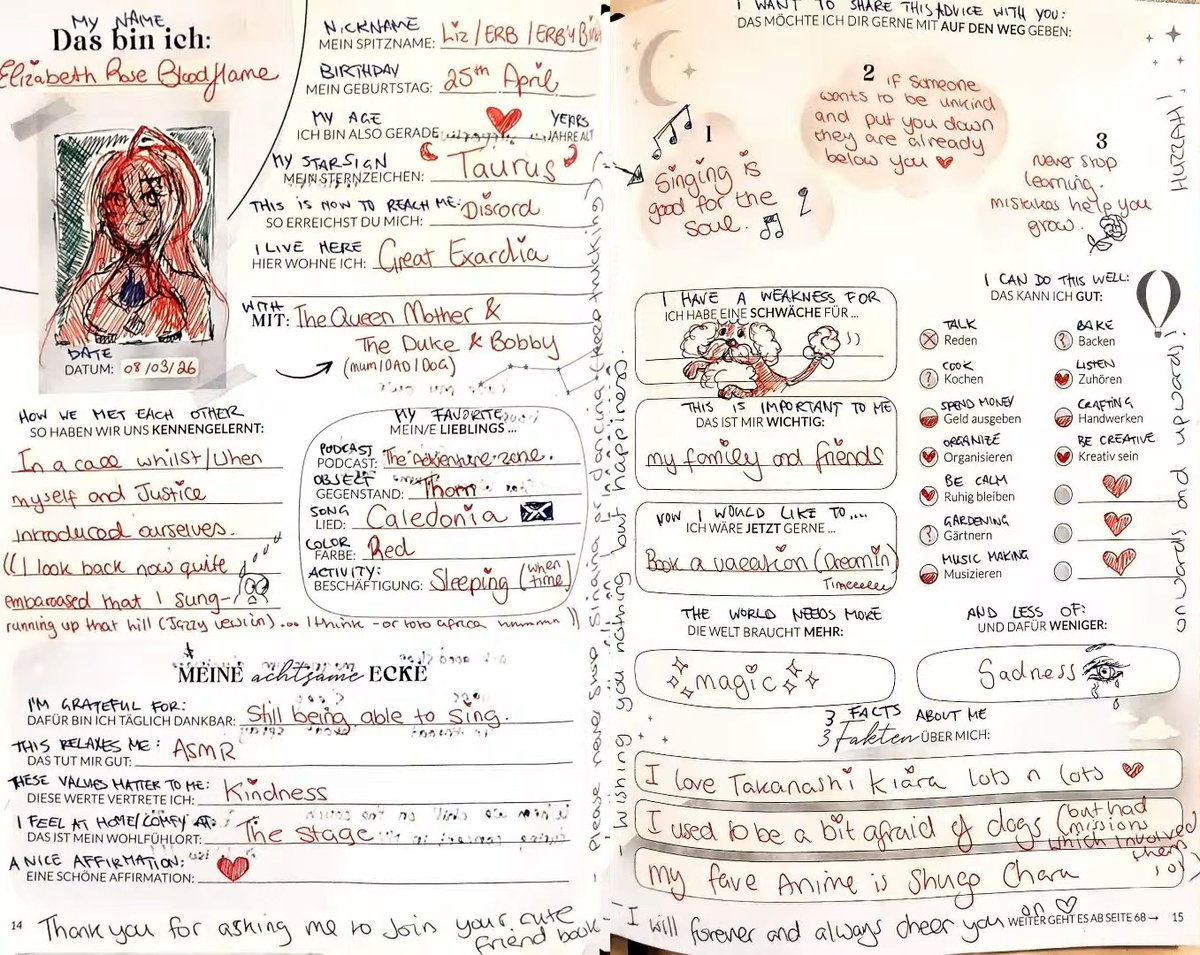 MY NAME
Das bin ich:
Elizabeth Rose Bloodflame
DATE
DATUM: 08/03/26
NICKNAME
MEIN SPITZNAME: Liz/ERB/ERBY
BIRTHDAY
MEIN GEBURTSTAG: 25th April
MY AGE YEARS
ICH BIN ALSO GERADE JAHRE ALT
MY STARSIGN
MEIN STERNZEICHEN: Taurus
THIS IS HOW TO REACH ME:
SO ERREICHST DU MICH: Discord
I LIVE HERE
HIER WOHNE ICH: Great Exardia
WITH
MIT: The Queen Mother &
The Duke & Bobby
(mum/DAD/DOG)
HOW WE MET EACH OTHER
SO HABEN WIR UNS KENNENGELERNT:
In a call whilst/when
myself and Justice
introduced ourselves.
((I look back now quite
embarassed that I sung-
running up that hill (Jazzy version)... I think - or toto africa hmmmm))
MY FAVORITE
MEIN/E LIEBLINGS ...
PODCAST
PODCAST: The Adventure zone.
OBJECT
GEGENSTAND: Thorn
SONG
LIED: Caledonia
COLOR
FARBE: Red
ACTIVITY:
BESCHÄFTIGUNG: Sleeping (when time)
MEINE achtsame ECKE
I'M GRATEFUL FOR:
DAFÜR BIN ICH TÄGLICH DANKBAR: Still being able to sing.
THIS RELAXES ME:
DAS TUT MIR GUT: ASMR
THESE VALUES MATTER TO ME:
DIESE WERTE VERTRETE ICH: Kindness
I FEEL AT HOME/COMFY AT:
DAS IST MEIN WOHLFÜHLORT: The stage
A NICE AFFIRMATION:
EINE SCHÖNE AFFIRMATION:
14 Thank you for asking me to join your cute
friend book
- Please never stop singing or dancing (keep trucking)
- Wishing you nothing but happiness.
I WANT TO SHARE THIS ADVICE WITH YOU:
DAS MÖCHTE ICH DIR GERNE MIT AUF DEN WEG GEBEN:
1
Singing is
good for the
soul.
2
if someone
wants to be unkind
and put you down
they are already
below you
3
Never stop
learning.
mistakes help you
grow.
HUZZAH!
onwards and upwards!
I HAVE A WEAKNESS FOR
ICH HABE EINE SCHWÄCHE FÜR ...
THIS IS IMPORTANT TO ME
DAS IST MIR WICHTIG:
my family and friends
NOW I WOULD LIKE TO....
ICH WÄRE JETZT GERNE ...
Book a vacation (Dreamin
Timeeeeee
I CAN DO THIS WELL:
DAS KANN ICH GUT:
TALK
Reden
COOK
Kochen
SPEND MONEY
Geld ausgeben
ORGANIZE
Organisieren
BE CALM
Ruhig bleiben
GARDENING
Gärtnern
MUSIC MAKING
Musizieren
BAKE
Backen
LISTEN
Zuhören
CRAFTING
Handwerken
BE CREATIVE
Kreativ sein
THE WORLD NEEDS MORE
DIE WELT BRAUCHT MEHR:
magic
AND LESS OF:
UND DAFÜR WENIGER:
Sadness
3 FACTS ABOUT ME
3 Fakten ÜBER MICH:
I love Takanashi Kiara lots n lots
I used to be a bit afraid of dogs (but had
missions
which involved
them
my fave Anime is Shugo Chara
I will forever and always cheer you on
WEITER GEHT ES AB SEITE 68→ 15